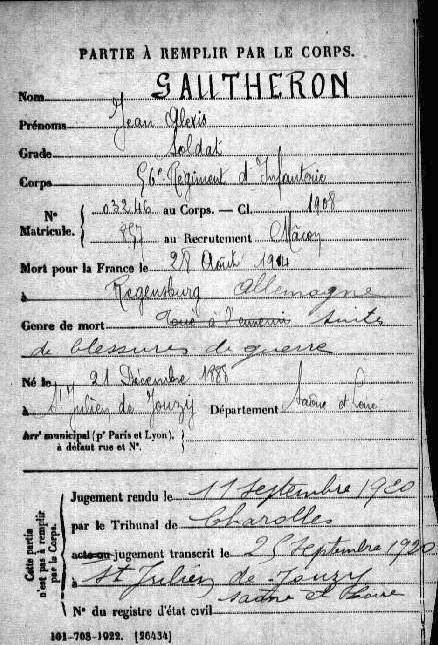 PARTIE À REMPLIR PAR LE CORPS.
Nom GAUTHERON
Prénoms Jean Alexis
Grade Soldat
Corps 56e Régiment d'Infanterie
N° Matricule. 03246 au Corps. — Cl. 1908
897 au Recrutement Mâcon
Mort pour la France le 28 Août 1914
à Regensburg Allemagne
Genre de mort Tué à l'ennemi suites
de blessures de guerre
Né le 21 Décembre 1888
à St Julien de Jonzy Département Saône et Loire
Arrt municipal (pr Paris et Lyon),
à défaut rue et N°.
Cette partie n'est pas à remplir par le Corps.
Jugement rendu le 11 Septembre 1920
par le Tribunal de Charolles
acte ou jugement transcrit le 25 Septembre 1920
à St Julien de Jonzy
Saône et Loire
N° du registre d'état civil
101-708-1922. [26434]